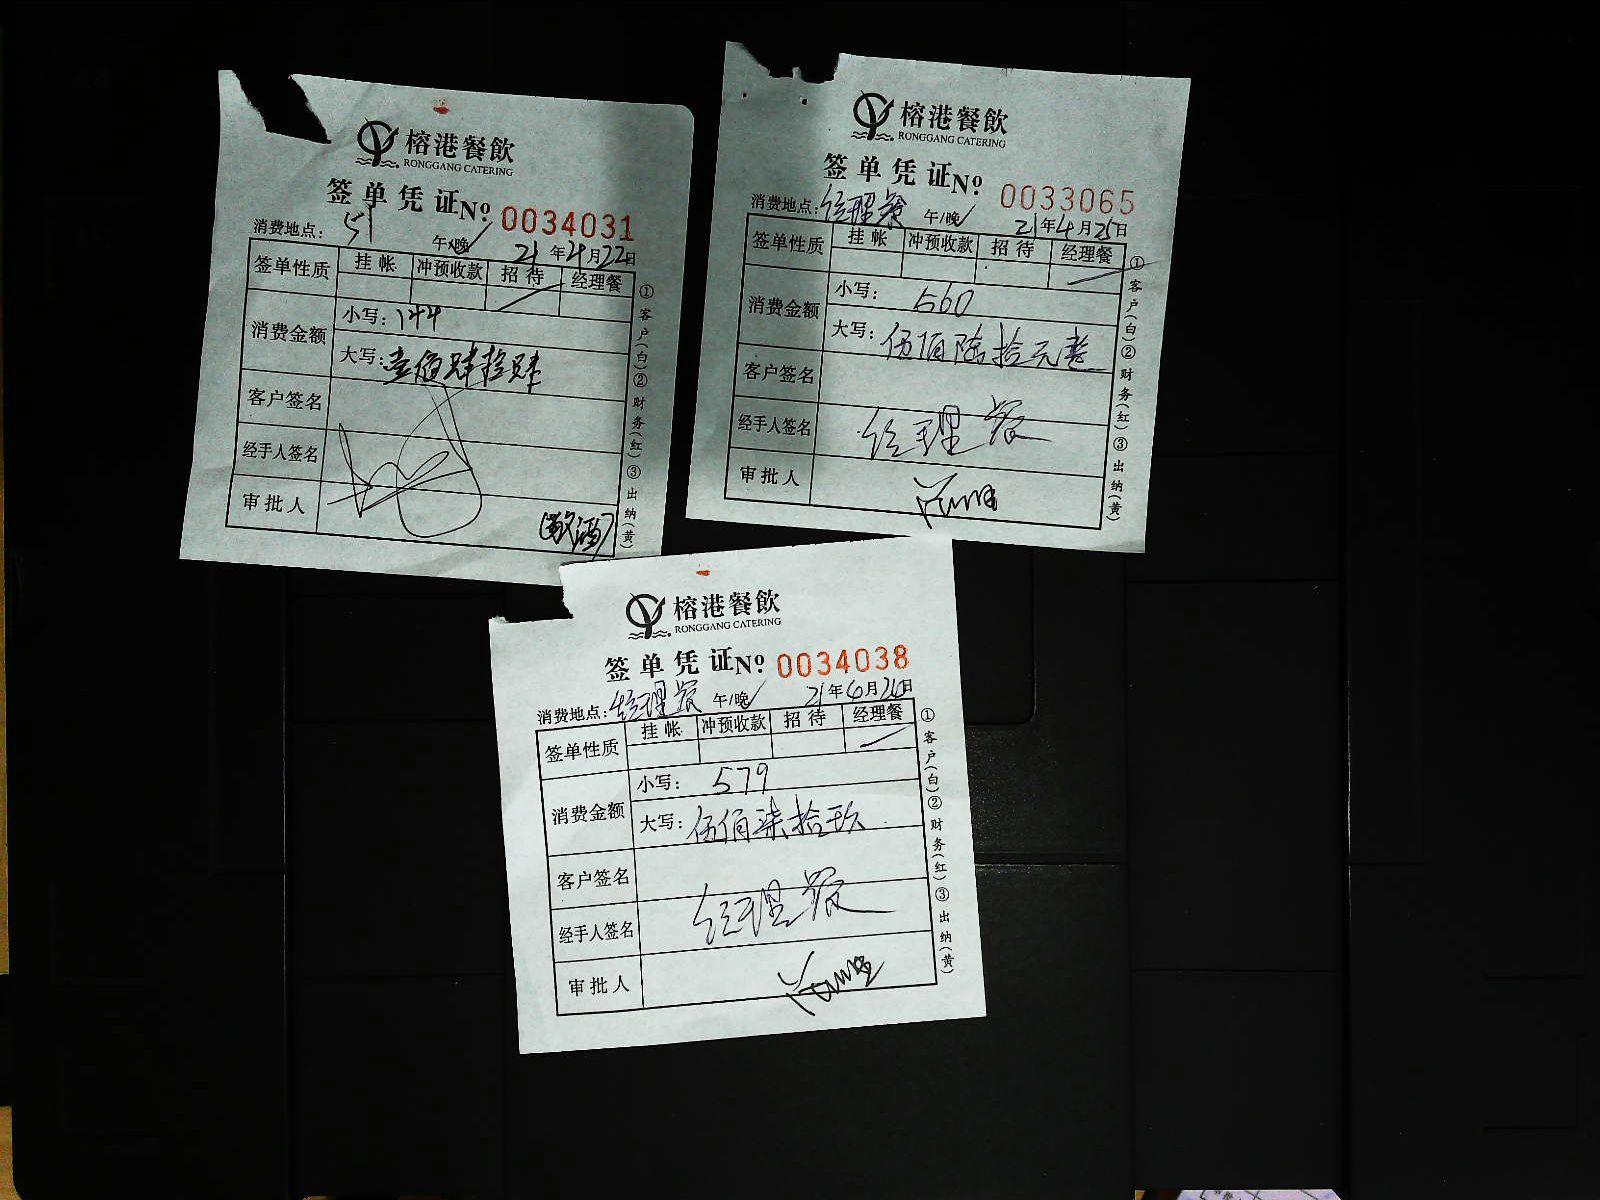 榕港餐飲
RONGGANG CATERING
签单凭证 № 0034031
消费地点: 51 午/晚 21年4月22日
签单性质 挂帐 冲预收款 招待 经理餐
消费金额 小写: 144
大写: 壹佰肆拾肆
客户签名
经手人签名
审批人
(敬酒)
①客户(白)②财务(红)③出纳(黄)
榕港餐飲
RONGGANG CATERING
签单凭证 № 0033065
消费地点: 经理餐 午/晚 21年4月25日
签单性质 挂帐 冲预收款 招待 经理餐
消费金额 小写: 560
大写: 伍佰陆拾元整
客户签名
经手人签名 经理餐
审批人
①客户(白)②财务(红)③出纳(黄)
榕港餐飲
RONGGANG CATERING
签单凭证 № 0034038
消费地点: 经理餐 午/晚 21年4月24日
签单性质 挂帐 冲预收款 招待 经理餐
消费金额 小写: 579
大写: 伍佰柒拾玖
客户签名
经手人签名 经理餐
审批人
①客户(白)②财务(红)③出纳(黄)